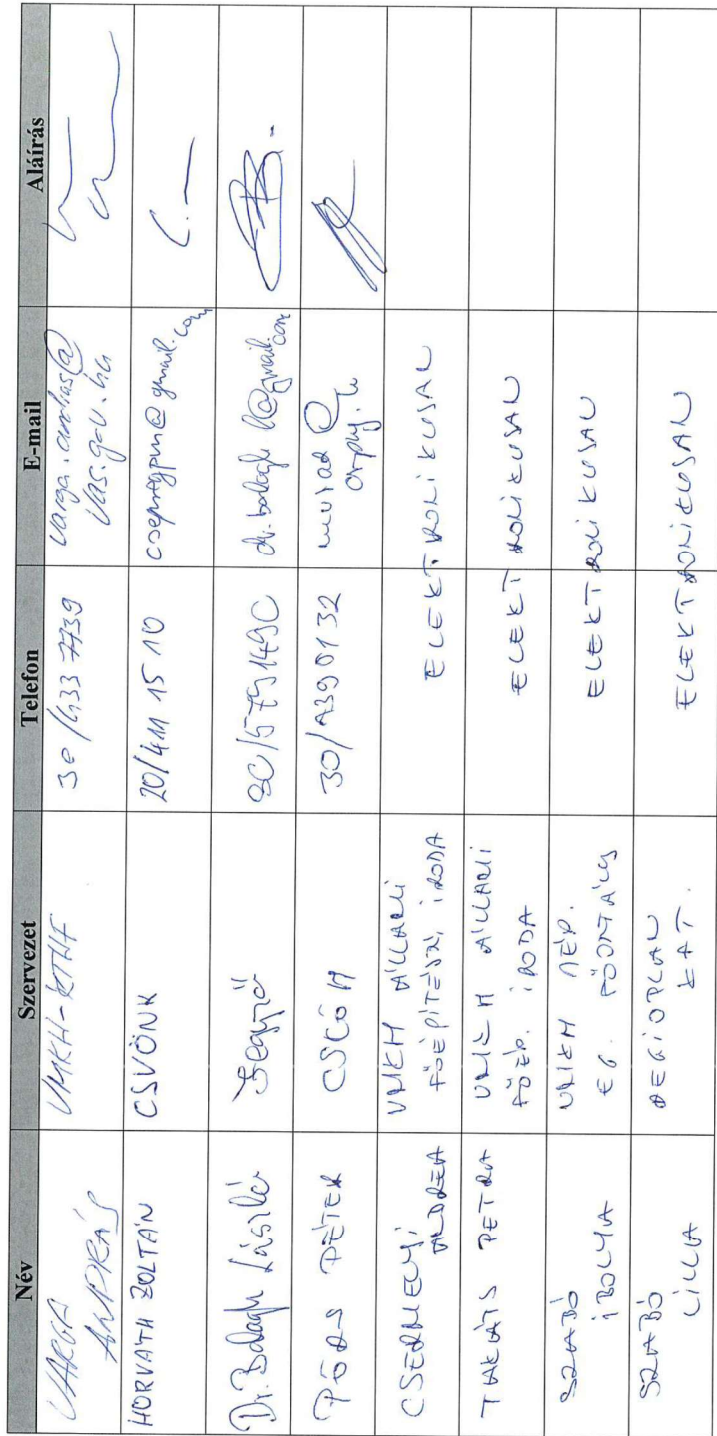 Név Szervezet Telefon E-mail Aláírás
VARGA
ANDRÁS
VMKH-KTHF
30/433 7739
varga.andras@
vas.gov.hu
HORVÁTH ZOLTÁN
CSVÖNK
20/411 15 10
csepregpm@gmail.com
Dr. Balagh László
Jegyző
dr.balagh.l@gmail.com
PÓRS PÉTER
30/7390132
CSERMELYI
ANDREA
VMKH ÁLLAMI
FŐÉPÍTÉSZI IRODA
ELEKTRONIKUSAN
TAKÁTS PETRA
VMKH ÁLLAMI
FŐÉP. IRODA
ELEKTRONIKUSAN
SZABÓ
IBOLYA
VMKH NÉP.
EG. FŐOSZTÁLY
ELEKTRONIKUSAN
SZABÓ
LILLA
REGIOPLAN
KFT.
ELEKTRONIKUSAN